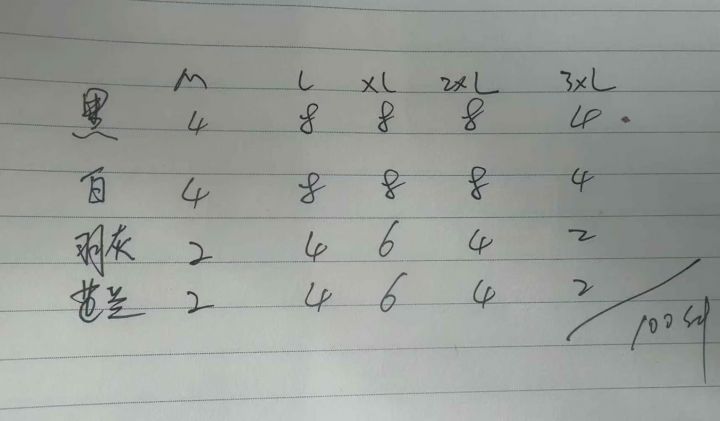 M L XL 2XL 3XL
黑 4 8 8 8 4
白 4 8 8 8 4
羽灰 2 4 6 4 2
芭兰 2 4 6 4 2
100